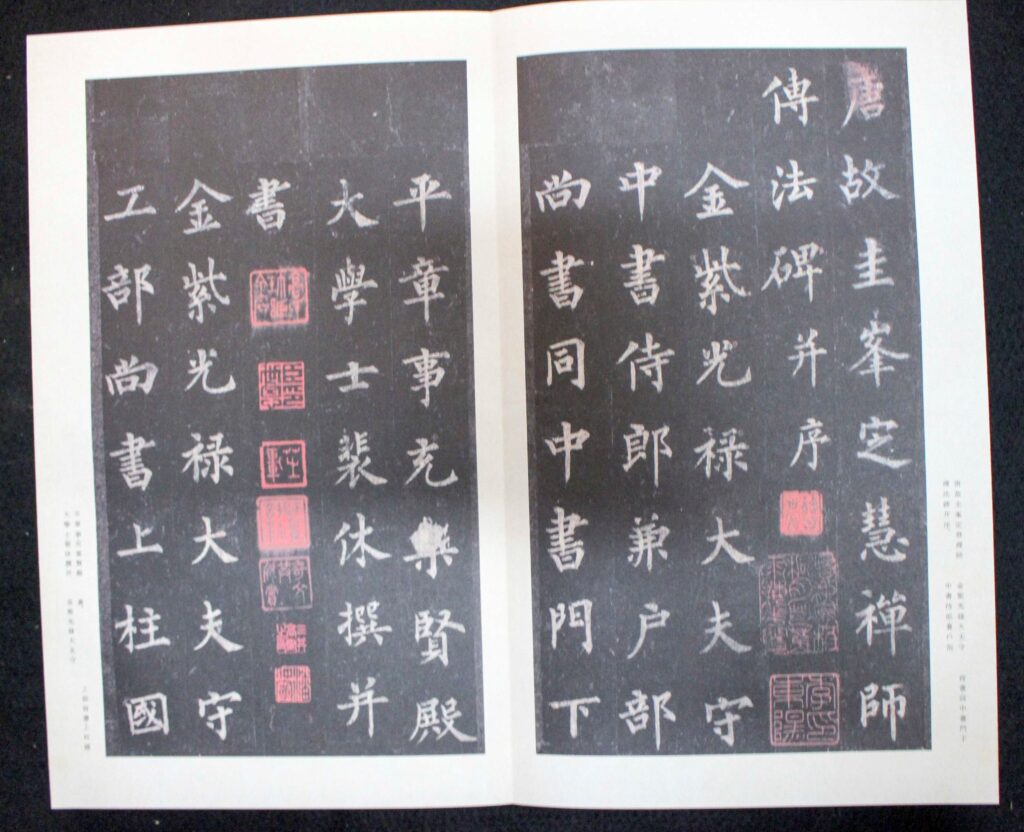 唐故圭峯定慧禪師
傳法碑并序
金紫光禄大夫守
中書侍郎兼户部
尚書同中書門下
平章事充集賢殿
大學士裴休撰并
書
金紫光禄大夫守
工部尚書上柱國